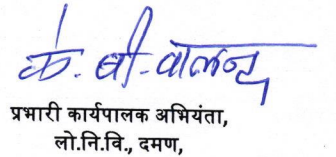 के. बी. वालन्द
प्रभारी कार्यपालक अभियंता,
लो.नि.वि., दमण,